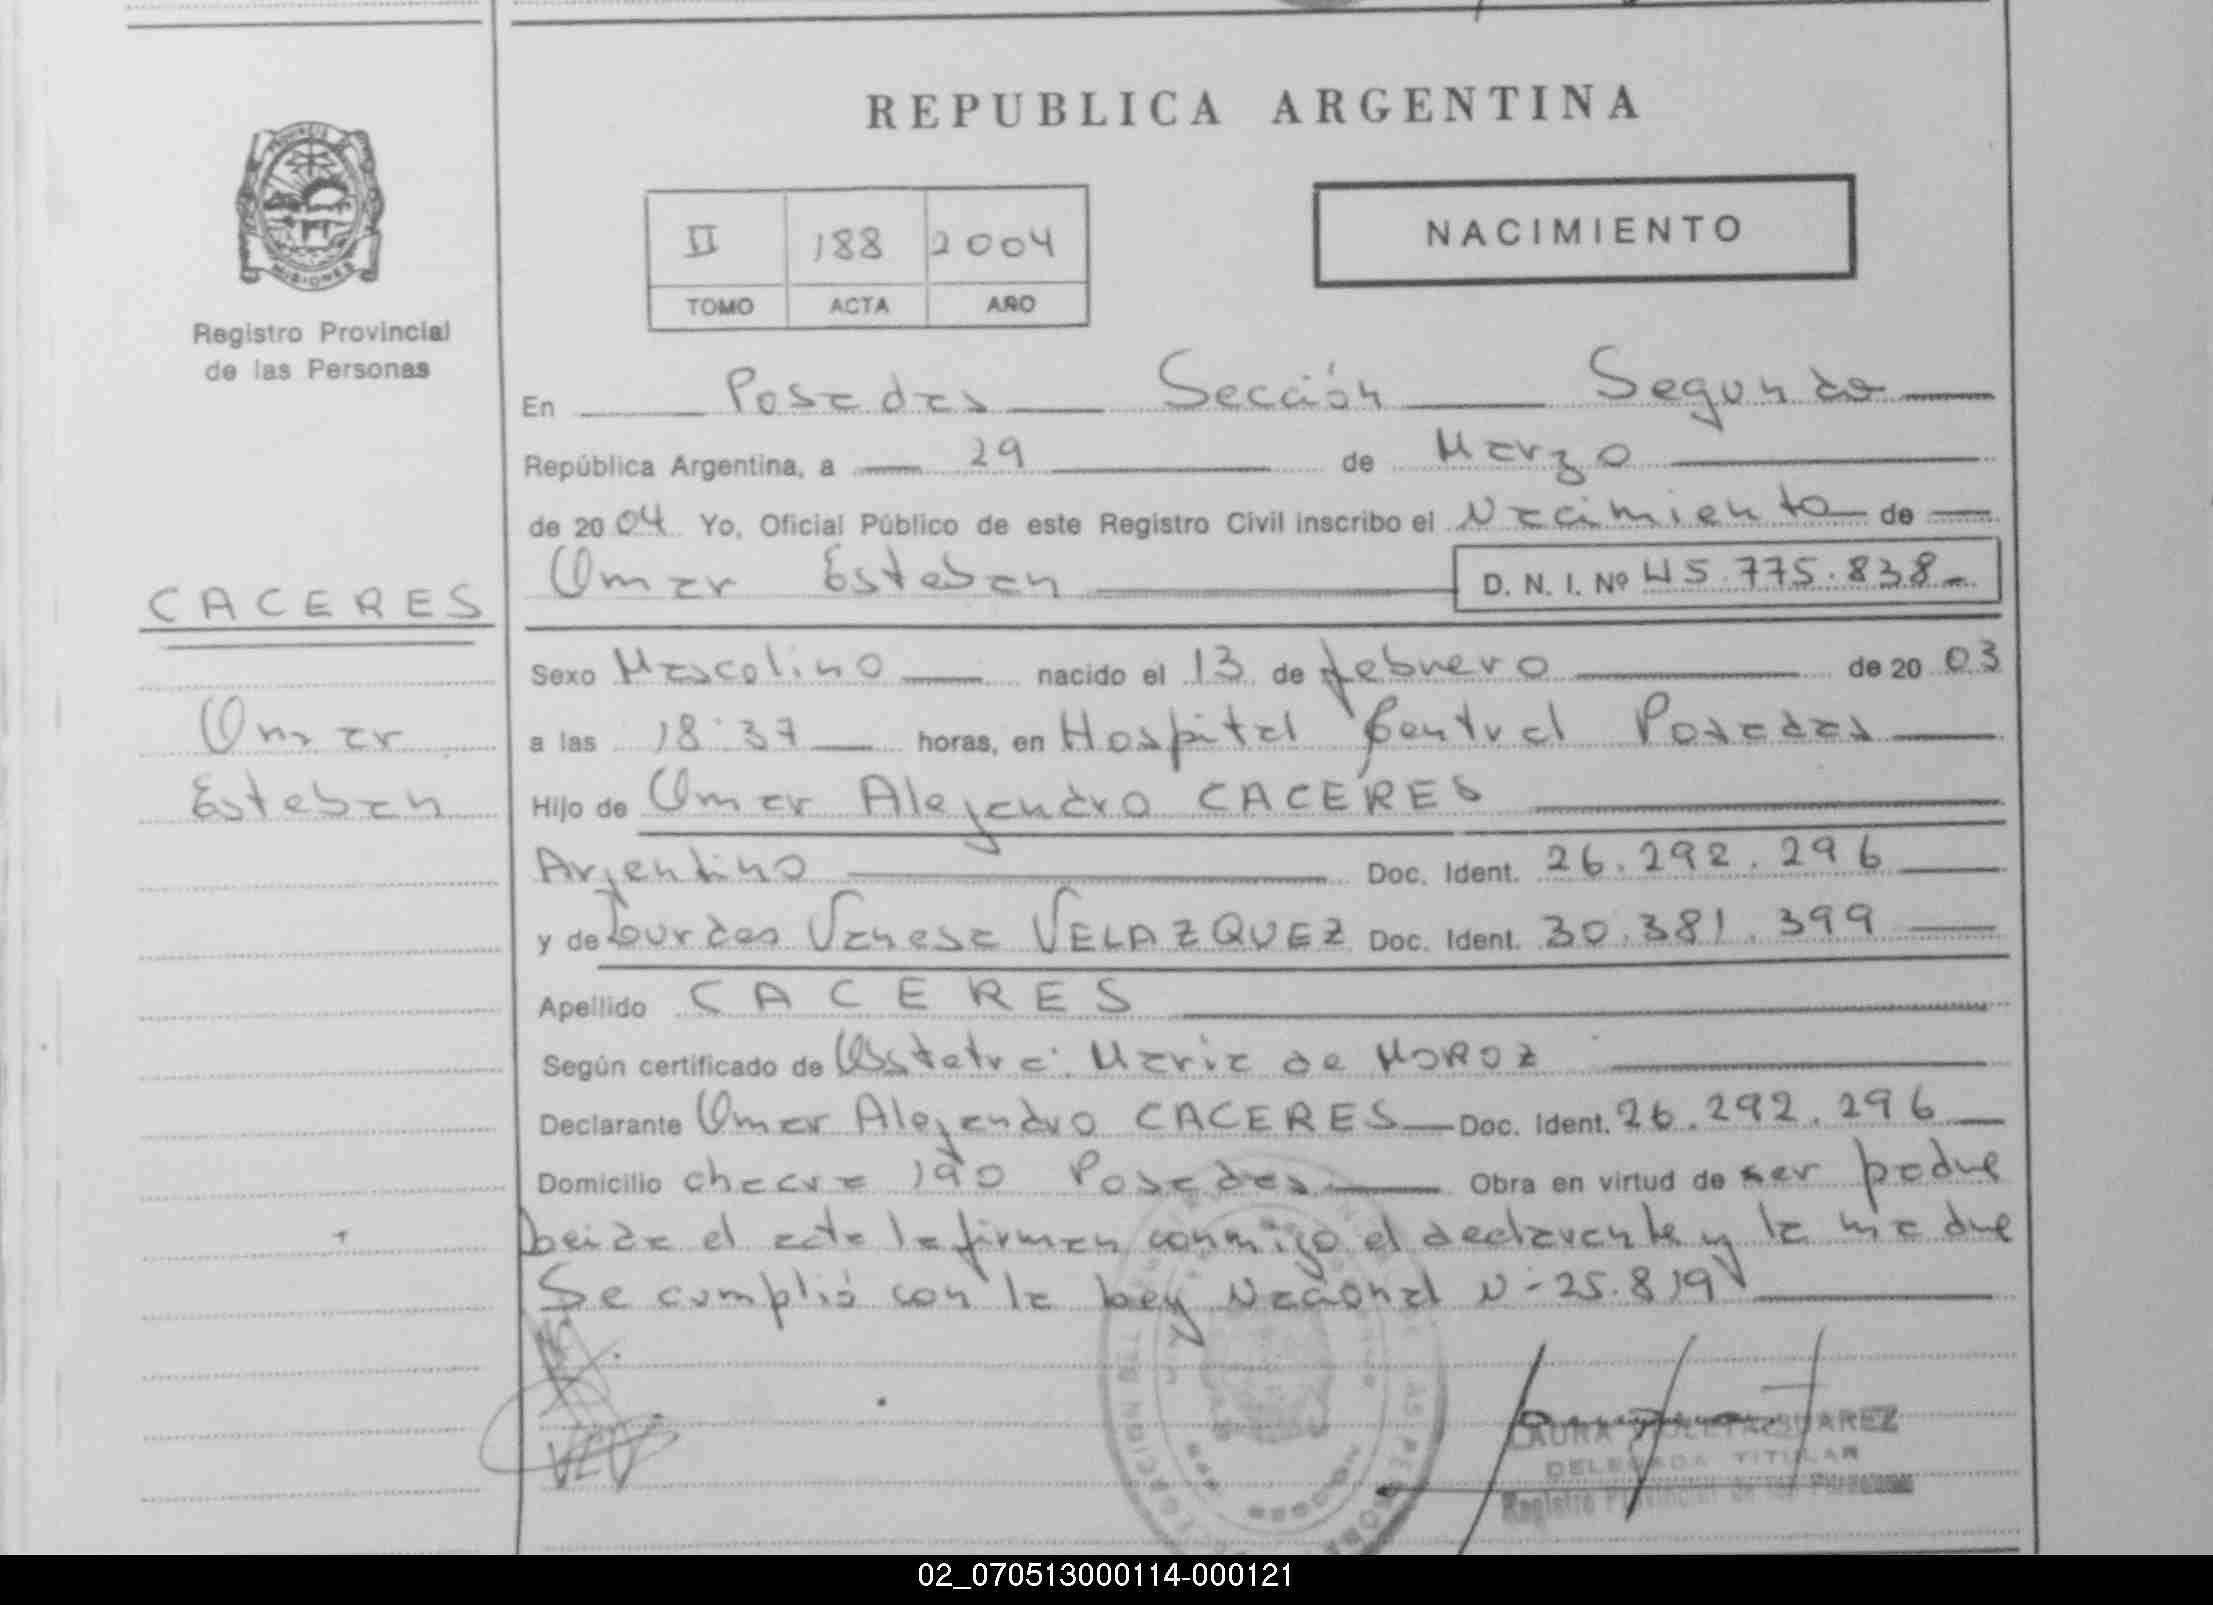 REPUBLICA ARGENTINA
NACIMIENTO
II 188 2004
TOMO ACTA AÑO
PROVINCIA
MISIONES
Registro Provincial
de las Personas
CACERES
Omar
Esteban
En Posadas Sección Segunda
República Argentina, a 29 de Marzo
de 2004 Yo, Oficial Público de este Registro Civil inscribo el Nacimiento de
Omar Esteban D. N. I. Nº 45.775.838
Sexo Masculino nacido el 13 de febrero de 2003
a las 18:37 horas, en Hospital Central Posadas
Hijo de Omar Alejandro CACERES
Argentino Doc. Ident. 26.292.296
y de Lourdes Vanesa VELAZQUEZ Doc. Ident. 30.381.399
Apellido CACERES
Según certificado de Obstetra: Maria de MOROZ
Declarante Omar Alejandro CACERES Doc. Ident. 26.292.296
Domicilio 190 Posadas Obra en virtud de ser padre
Leida el acta la firman conmigo el declarante y la madre
Se cumplió con la Ley Nacional N- 25.819
LAURA SUAREZ
DELEGADA TITULAR
Registro Provincial de las Personas
02_070513000114-000121